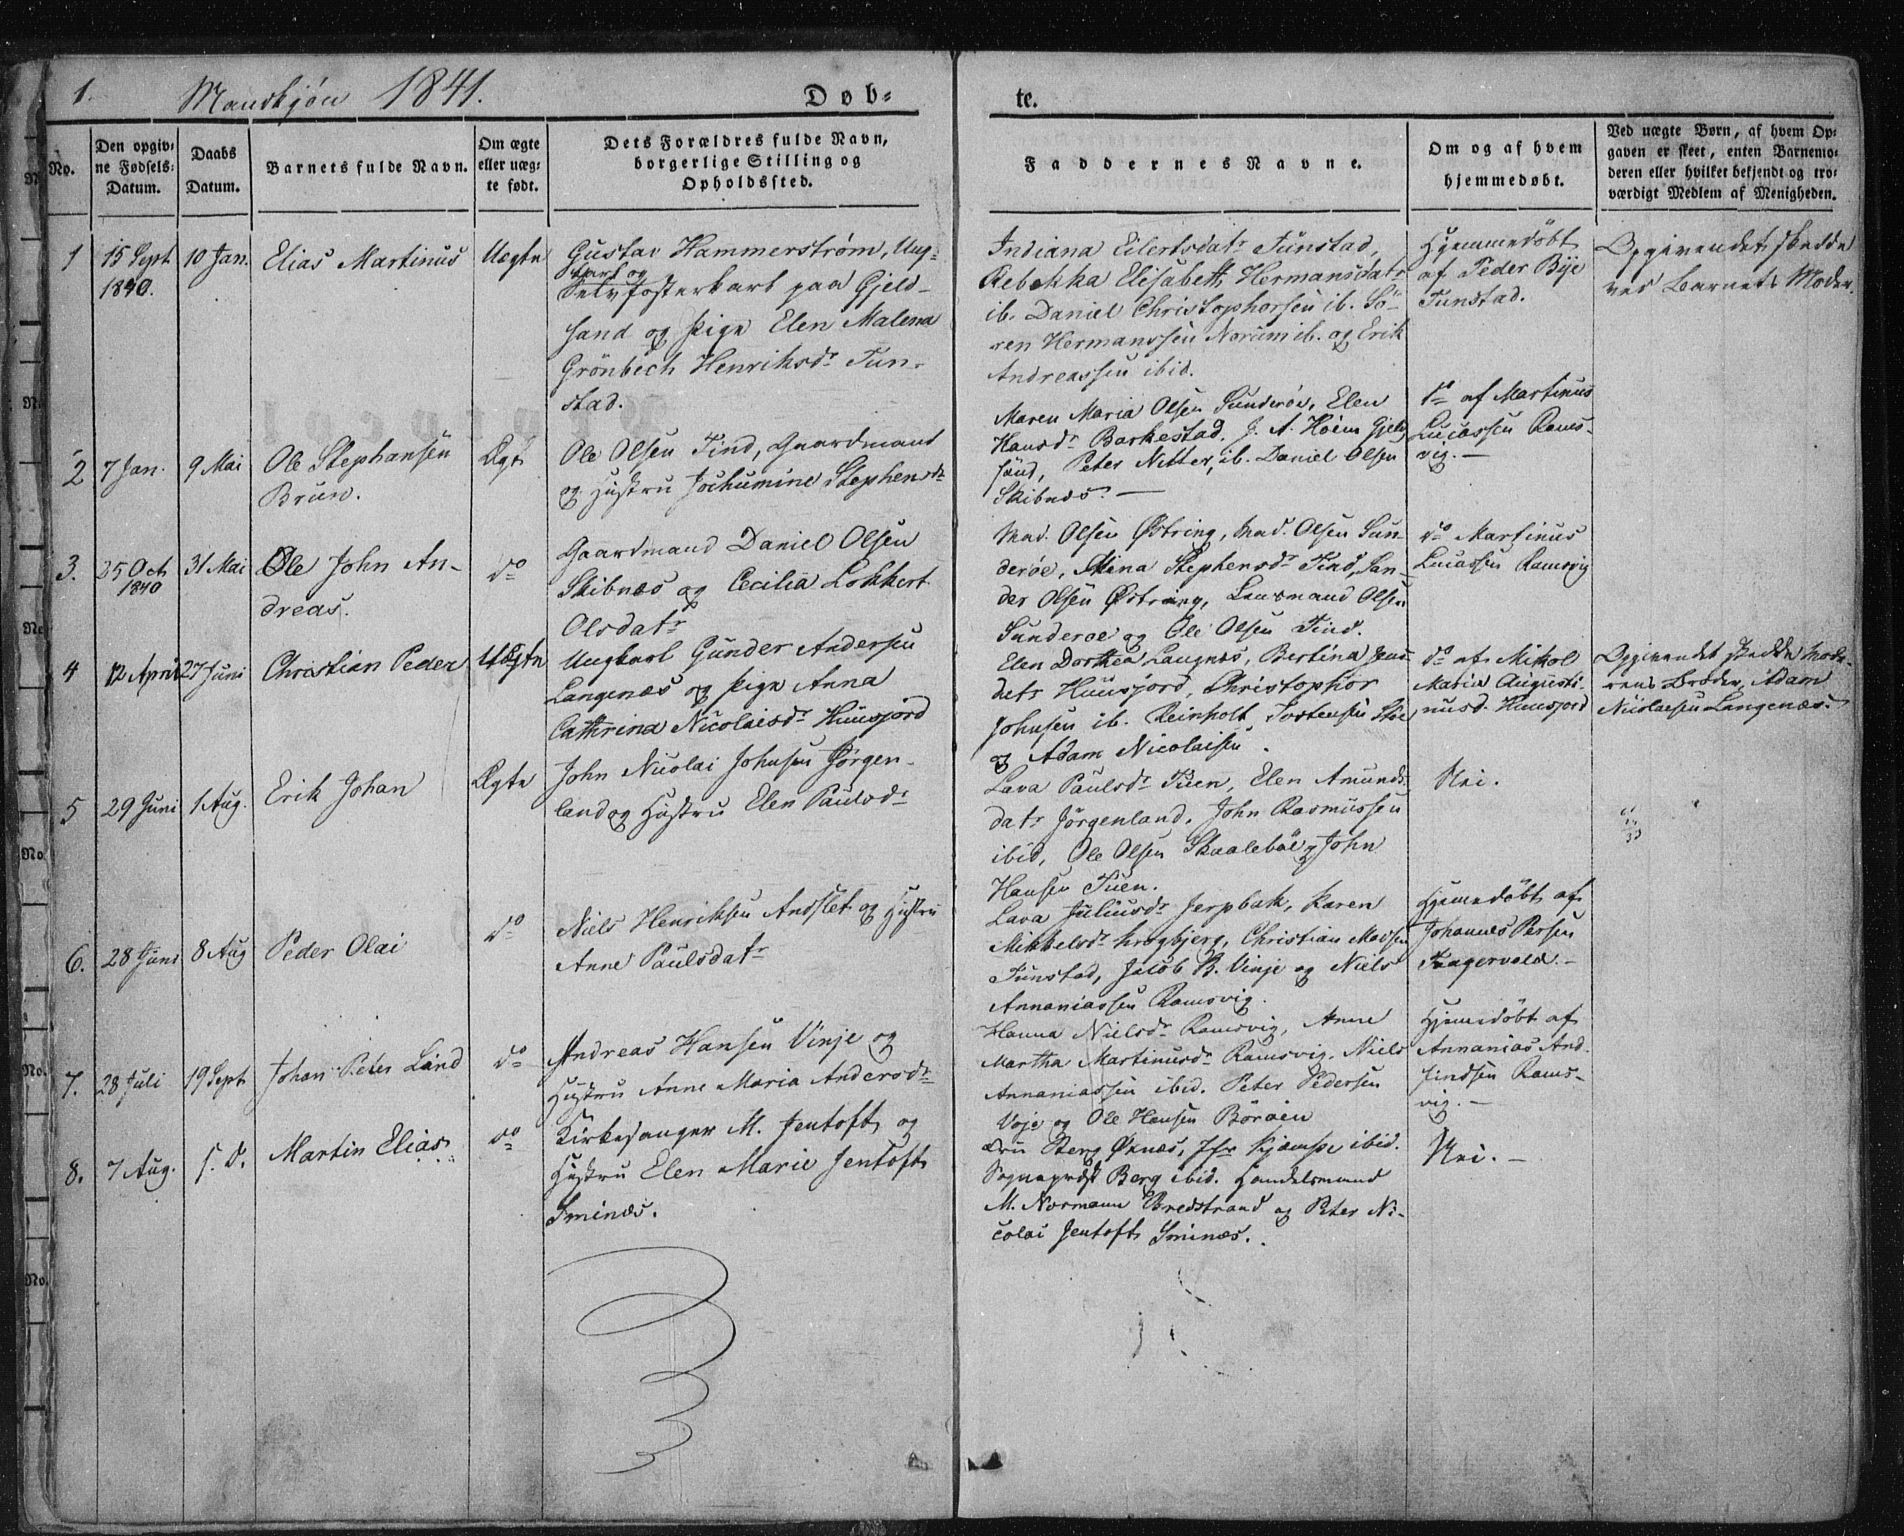 1. Mandkjøn 1841. Døb-
te.
No.
Den opgiv-
ne Fødsels-
Datum.
Daabs
Datum.
Barnets fulde Navn.
Om ægte
eller uæg-
te født.
Dets Forældres fulde Navn,
borgerlige Stilling og
Opholdssted.
Faddernes Navne.
Om og af hvem
hjemmedøbt.
Ved uægte Børn, af hvem Op-
gaven er skeet, enten Barnemo-
deren eller hvilket bekjendt og tro-
værdigt Medlem af Menigheden.
1
15 Sept
1840.
10 Jan.
Elias Martinus
Uegte
Gustav Hammerstrøm, Ung-
karl og
paa Gjeld-
sand og Pige Elen Malena
Grönbech Henriksdr Tun-
stad.
Indiana Eilertsdatr Tunstad,
Rebekka Elisabeth Hermansdatr
ib. Daniel Christophersen ib. Sö-
ren Hermanssen Norum ib. og Erik
Andreassen ibid.
Hjemmedöbt
af Peder Bye
Tunstad.
Opgivendet skedde
ved Barnets Moder.
2
7 Jan.
9 Mai
Ole Stephansen
Brun.
Ægte
Ole Olsen Tind, Gaardmand
og Hustru Jochumine Stephensdr
Maren Maria Olsen Sunderöe, Elen
Hansdr Barkestad, J. A. Höien Gjeld-
sand, Peter Nitter, ib. Daniel Olsen
Skibnæs. —
do af Martinus
Lucassen Rams-
vig. —
3.
25 Oct
1840
31 Mai
Ole John An-
dreas.
do
Gaardmand Daniel Olsen
Skibnæs og Cecilia Lokkert
Olsdatr
Mad. Olsen Østring, Mad. Olsen Sun-
deröe, Mina Stephensdr Tind, San-
der Olsen Østring, Lensmand Olsen
Sunderoe og Ole Olsen Tind.
do Martinus
Lucassen Ramsvig
4
12 April
27 Juni
Christian Peder
Uægte
Ungkarl Gunder Andersen
Langenæs og Pige Anna
Cathrina Nicolaisdr Huusjord
Elen Dorthea Langnæs, Bertina Jens-
datr Huusjord, Christopher
Johnsen ib. Reinholt Tostensen Stöe
og Adam Nicolaisen.
do af Mikol
Maria Augusti-
nusd. Huusjord
Opgivendet skedde Mode-
rens Broder, Adam
Nicolaisen Langenæs.
5
29 Juni
1 Aug.
Erik Johan
Ægte
John Nicolai Johnsen Jörgen-
land og Hustru Elen Paulsdr
Lava Paulsdr Tuen, Elen Amunds-
datr Jörgenland, John Rasmussen
ibid, Ole Olsen Skaaleböe, John
Hansen Tuen.
Nei.
6.
28 Juni
8 Aug
Peder Olai
do
Niels Henriksen Andslet og Hustru
Anne Paulsdatr
Lava Juliusdr Jerpbak, Karen
Mikkelsdr Krogbjerg, Christian Madsen
Tunstad, Jacob B. Vinje og Niels
Annaniassen Ramsvig.
Hjemedöbt af
Johannes Persen
Fagervold. —
7.
28 Juli
19 Sept
Johan Peter Lind
do
Andreas Hansen Vinje og
Hustru Anne Maria Andersdr
Hanna Nielsdr Ramsvig, Anne
Martha Martinusdr Ramsvig, Niels
Annaniassen ibid. Peter Pedersen
Voje og Ole Hansen Böröen
Hjemedöbt af
Annanias And-
findsen Rams-
vig. —
8.
7 Aug.
s. d.
Martin Elias
do
Kirkesanger M. Jentoft og
Hustru Elen Marie Jentoft
Sminæs.
Fru Berg Øxnæs, Jfr Kjempe ibid.
Sognepræst Berg ibid. Handelsmand
M. Normann Bredstrand og Peter Ni-
colai Jentoft Sminæs.
Nei. —